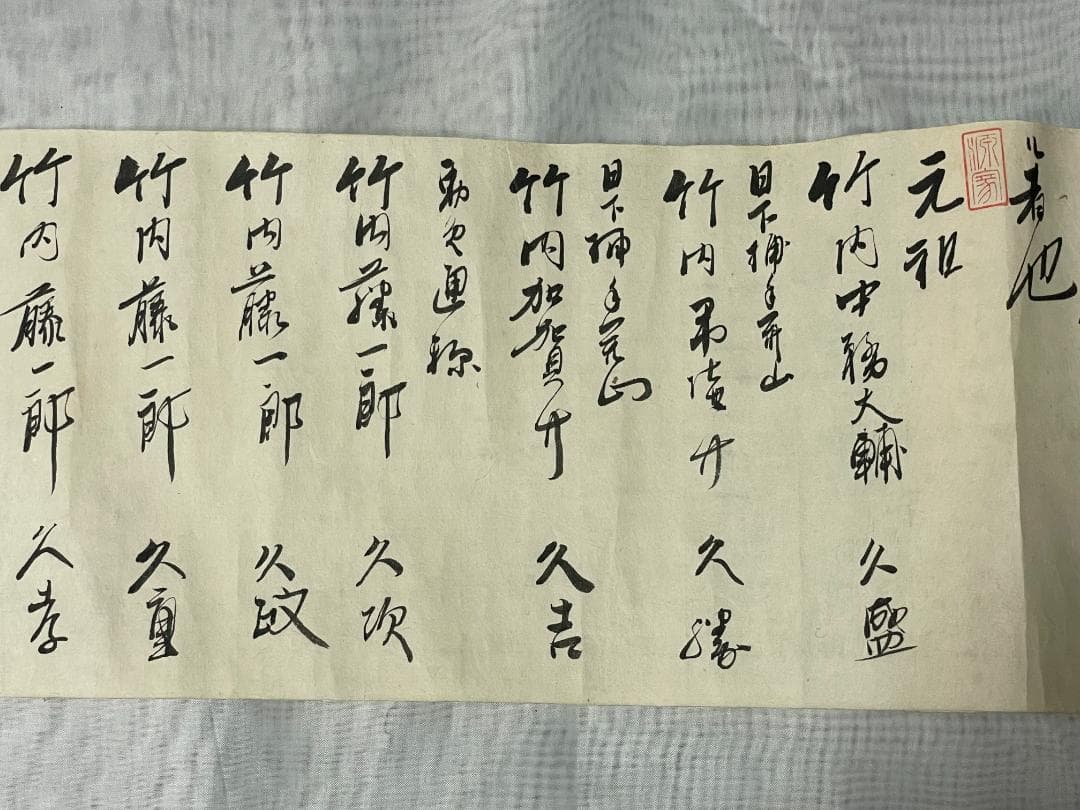 者也
元祖
竹内中務大輔 久盛
日下捕手開山
竹内常陸介 久勝
日下捕手開山
竹内加賀介 久吉
通称
竹内藤一郎 久次
竹内藤一郎 久政
竹内藤一郎 久重
竹内藤一郎 久孝